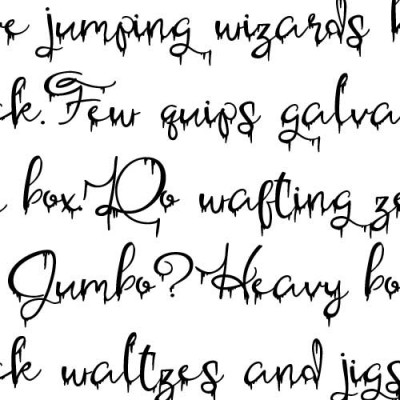 e jumping wizards
ck. Few quips galva
box. Do wafting ze
Jumbo? Heavy bo
ck waltzes and jigs